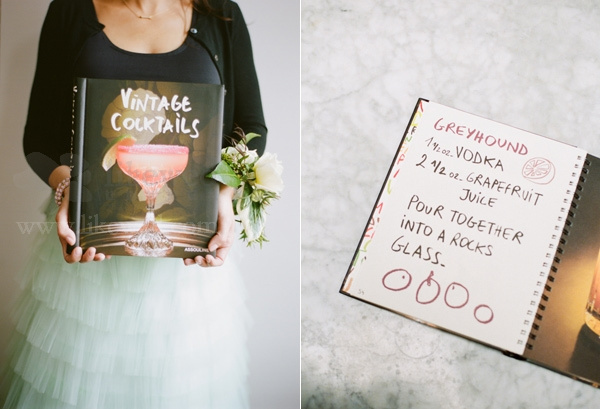 VINTAGE
COCKTAILS
ASSOULINE
GREYHOUND
1 1/2 oz. VODKA
2 1/2 oz. GRAPEFRUIT
JUICE
POUR TOGETHER
INTO A ROCKS
GLASS.